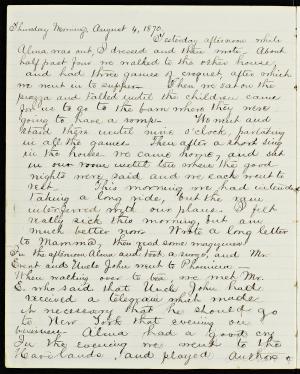 Thursday Morning, August 4, 1870.
Yesterday afternoon while
Alma was out, I dressed and then wrote. About
half past four we walked to the other house,
and had three games of croquet, after which
we went in to supper. Then we sat on the
piazza and talked until the children came
for us to go to the barn where they were
going to have a romp. We went and
staid there until nine o'clock, partaking
in all the games. Then after a short sing
in the house we came home, and sat
in our room until ten when the good
nights were said and we each went to
rest. This morning we had intended
taking a long ride, but the rain
interfered with our plans. I felt
really sick this morning, but am
much better now. Wrote a long letter
to Mamma, then read some magazines.
In the afternoon Alma and I took a, and Mr.
and Uncle John went to Phoenicia.
When walking over to tea we met Mr.
E. who said that Uncle John had
received a telegram which made
it necessary that he should go
to New York that evening on
business. Alma had a good cry
In the evening we went to the
Havilands, and played Authors